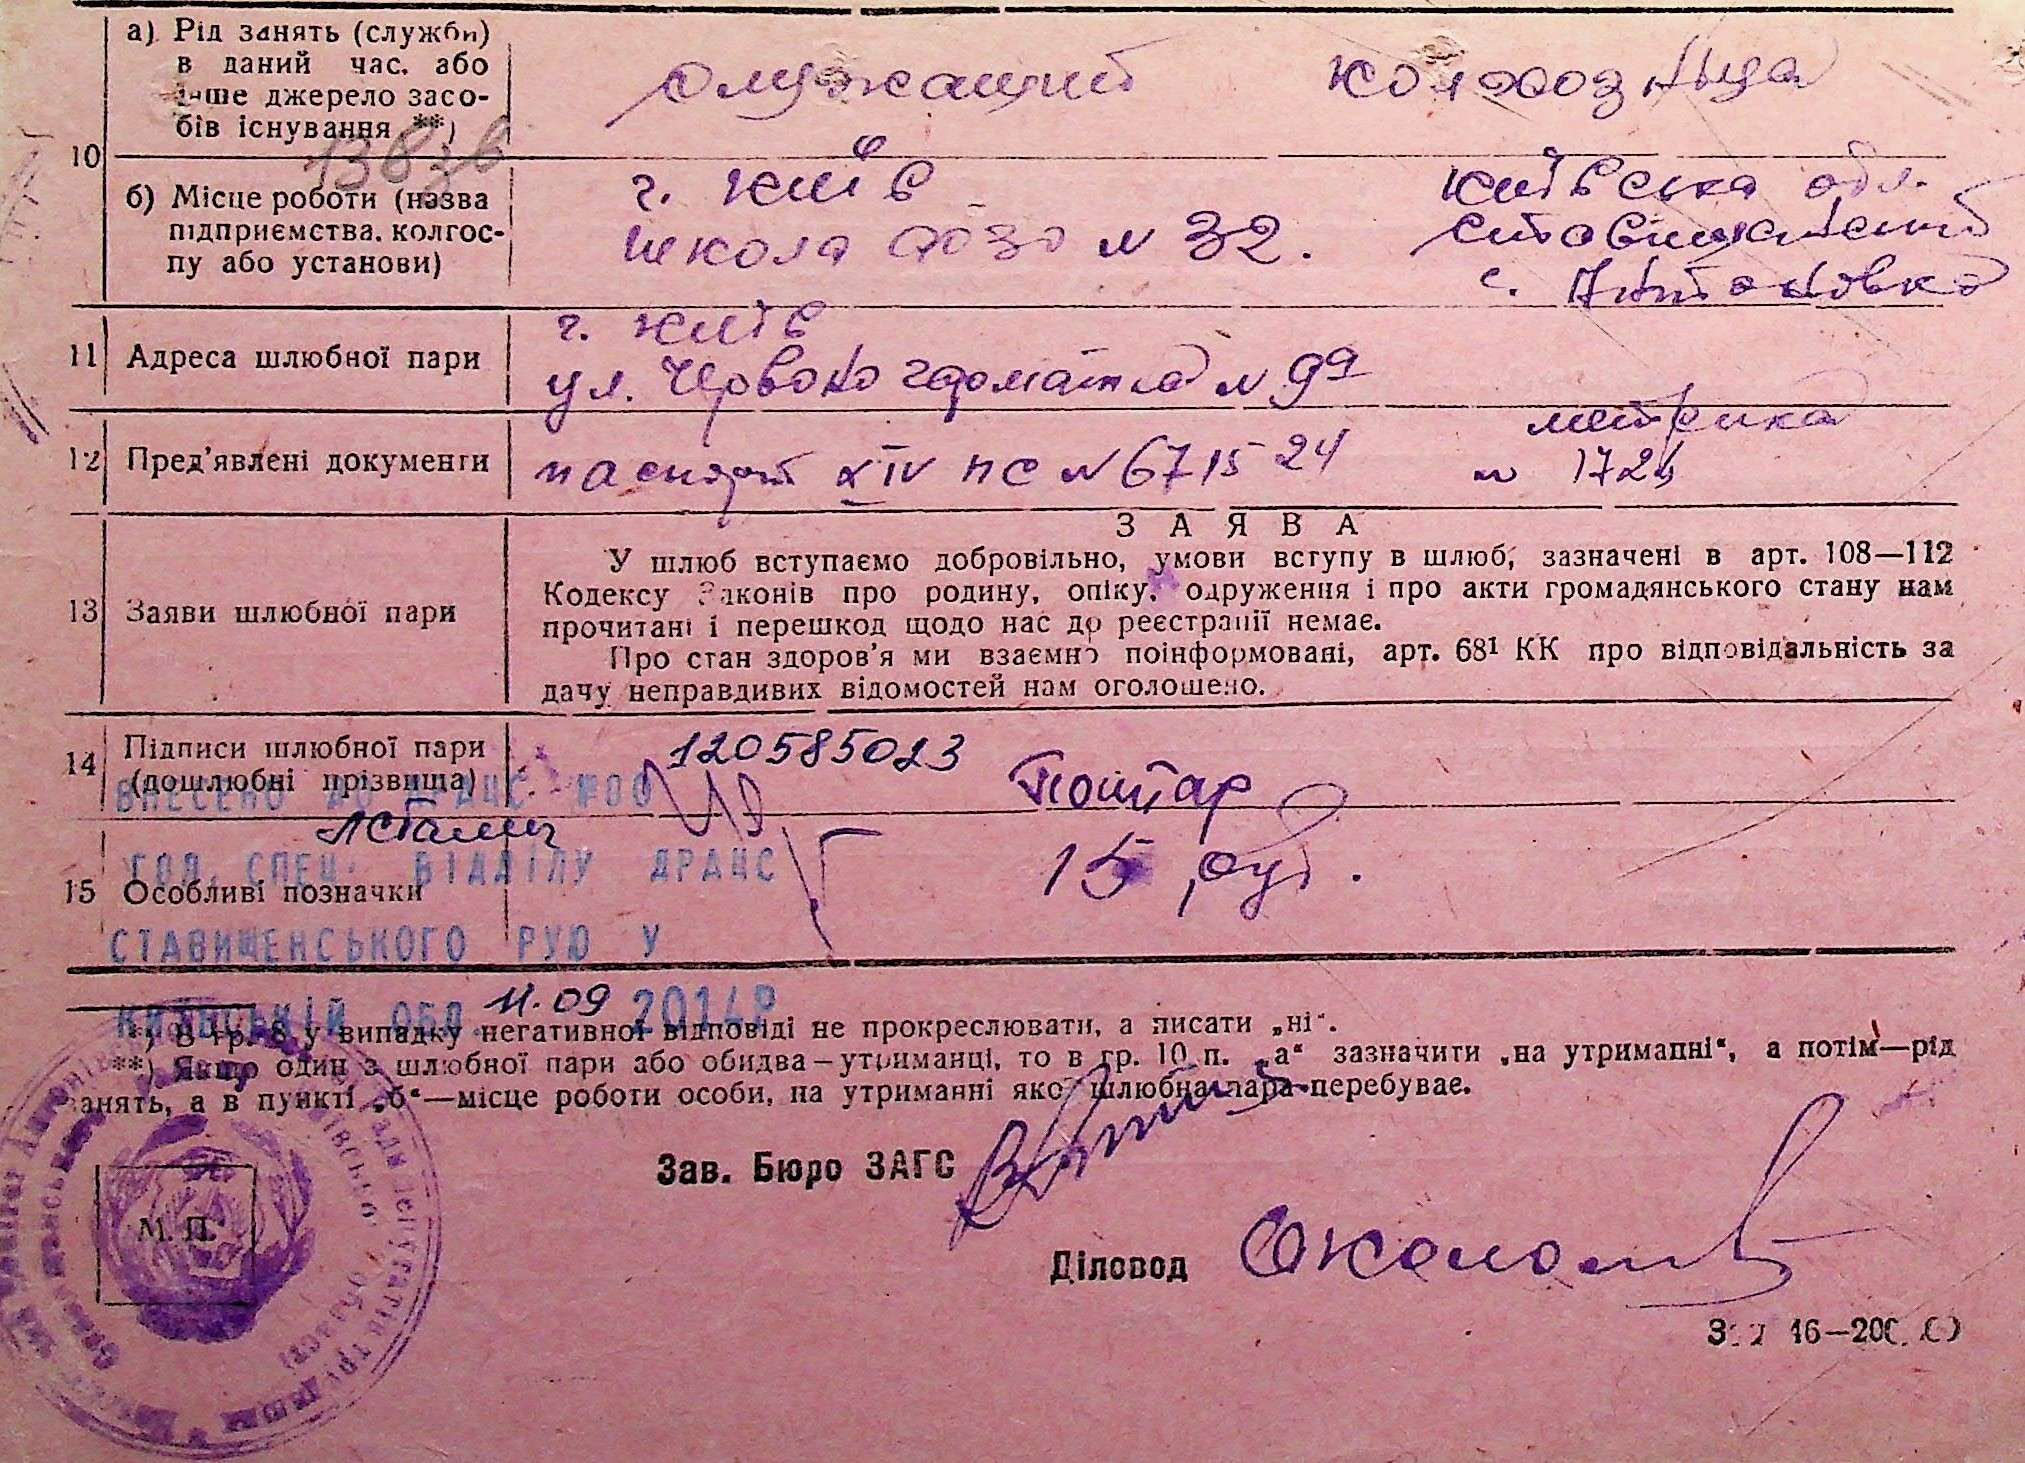 а) Рід занять (служби)
в даний час, або
інше джерело засо-
бів існування **)
служащий колхозница
10
б) Місце роботи (назва
підприємства, колгос-
пу або установи)
г. Київ
школа ФЗО N 32.
Київська обл.
с. Антоновка
11 Адреса шлюбної пари
г. Київ
ул. Червоно гарматна N 99
12 Пред'явлені документи
паспорт XIV ПС N 671524
метрика
N 1724
З А Я В А
13 Заяви шлюбної пари
У шлюб вступаємо добровільно, умови вступу в шлюб, зазначені в арт. 108—112
Кодексу Законів про родину, опіку, одруження і про акти громадянського стану нам
прочитані і перешкод щодо нас до реєстрації немає.
Про стан здоров'я ми взаємно поінформовані, арт. 68¹ КК про відповідальність за
дачу неправдивих відомостей нам оголошено.
14 Підписи шлюбної пари
(дошлюбні прізвища)
120585023
ВНЕСЕНО ДО ДРАЦС №00
ГОЛ. СПЕЦ. ВІДДІЛУ ДРАЦС
15 Особливі позначки
15 руб.
СТАВИЩЕНСЬКОГО РУЮ У
КИЇВСЬКІЙ ОБЛ. 11.09 2014Р
*) В гр. 8 у випадку негативної відповіді не прокреслювати, а писати „ні".
**) Якщо один з шлюбної пари або обидва—утриманці, то в гр. 10 п. „а" зазначити „на утриманні", а потім—рід
занять, а в пункті „б"—місце роботи особи, на утриманні якої шлюбна пара перебуває.
Зав. Бюро ЗАГС
М. П.
Діловод